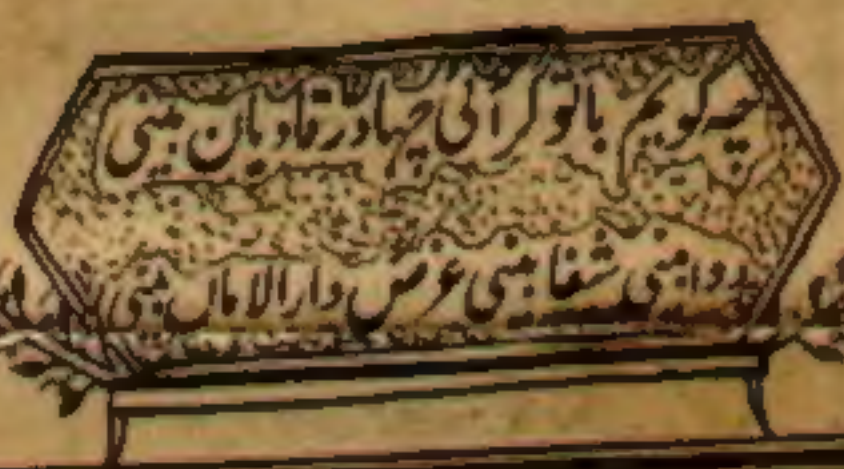 چہ گویم با تو گرآئی چہا در قادیان بینی
دوا بینی شفا بینی غرض دارالاماں بینی